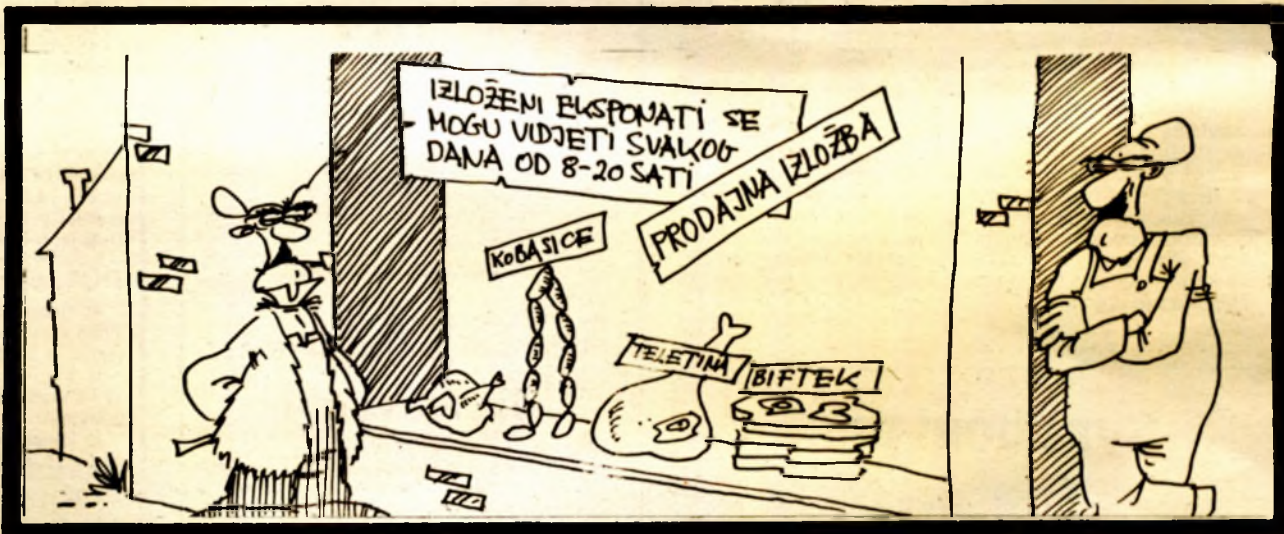 IZLOŽENI EKSPONATI SE
MOGU VIDJETI SVAKOG
DANA OD 8-20 SATI
PRODAJNA IZLOŽBA
KOBASICE
TELETINA
BIFTEK